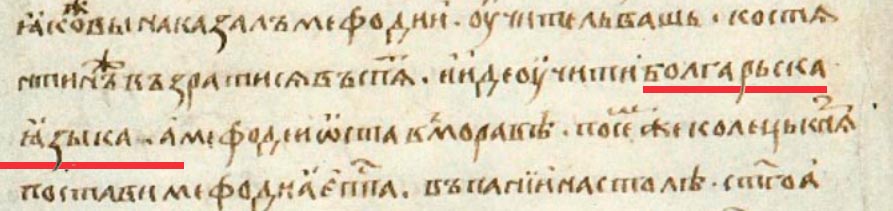 ꙗковыⷤ наказалъ мефодии · оучитель вашь · костѧ
нтинъⷤ възратисѧ въспѧⷮ · и иде оучитъ болгарьска
ꙗзыка · а мефодеи ѡста в моравѣ · посеⷨ же коцелъ кн҃ѧ
постави мефодиꙗ еп҃па · въ пании на столѣ · ст҃го а